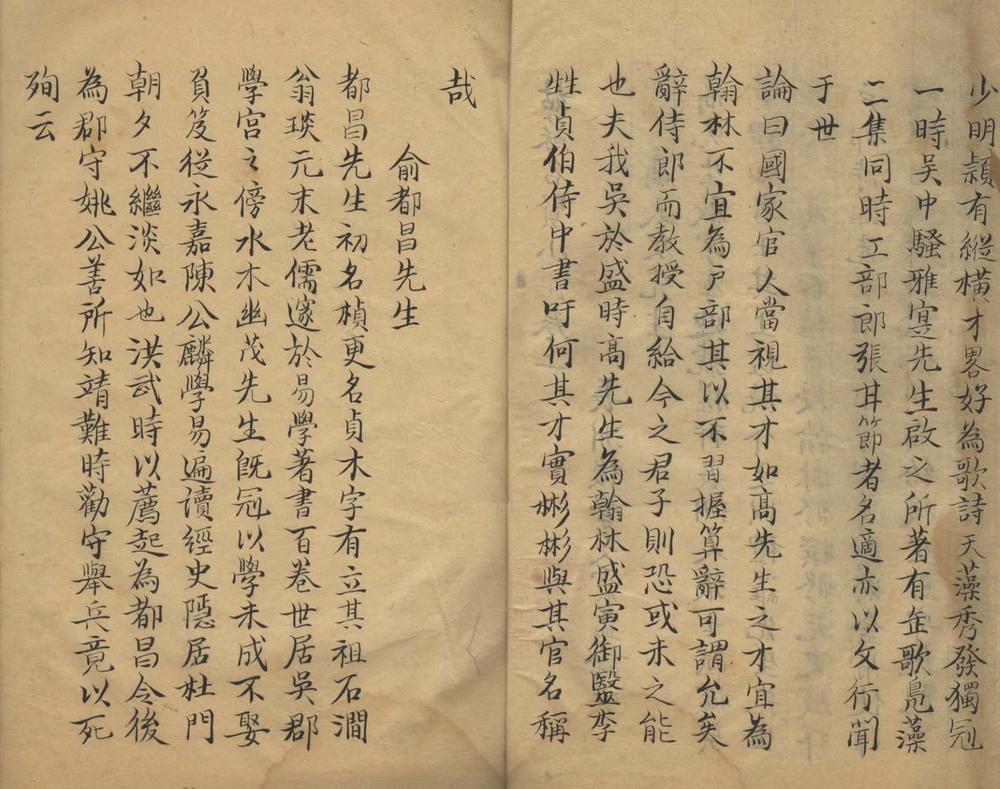 少明頴有縱橫才畧好為歌詩天藻秀發獨冠
一時吴中騷雅寔先生啟之所著有缶歌鳬藻
二集同時工部郎張其節者名適亦以文行聞
于世
論曰國家官人當視其才如髙先生之才宜為
翰林不宜為戸部其以不習握算辭可謂允矣
辭侍郎而教授自給今之君子則恐或未之能
也夫我吴於盛時髙先生為翰林盛寅御醫李
甡貞伯侍中書吁何其才實彬彬與其官名稱
哉
俞都昌先生
都昌先生初名楨更名貞木字有立其祖石澗
翁琰元末老儒邃於易學著書百卷世居吴郡
學宮之傍水木幽茂先生旣冠以學未成不娶
負笈從永嘉陳公麟學易遍讀經史隱居杜門
朝夕不繼淡如也洪武時以薦起為都昌令後
為郡守姚公善所知靖難時勸守舉兵竟以死
殉云